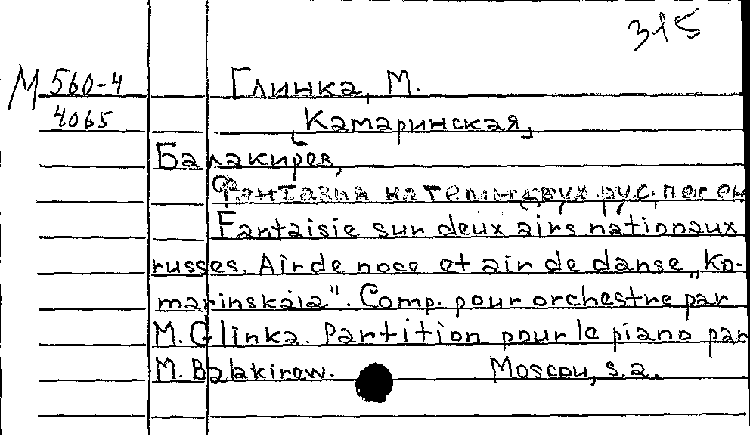 315
M 560-4 Глинка, М.
4065 Камаринская,
Балакирев,
Фантазия на темы двух рус. песен
Fantaisie sur deux airs nationaux
russes. Air de noce et air de danse „Ka-
marinskaia". Comp. pour orchestre par
M. Glinka. Partition pour le piano par
M. Balakirew. Moscou, s.a.